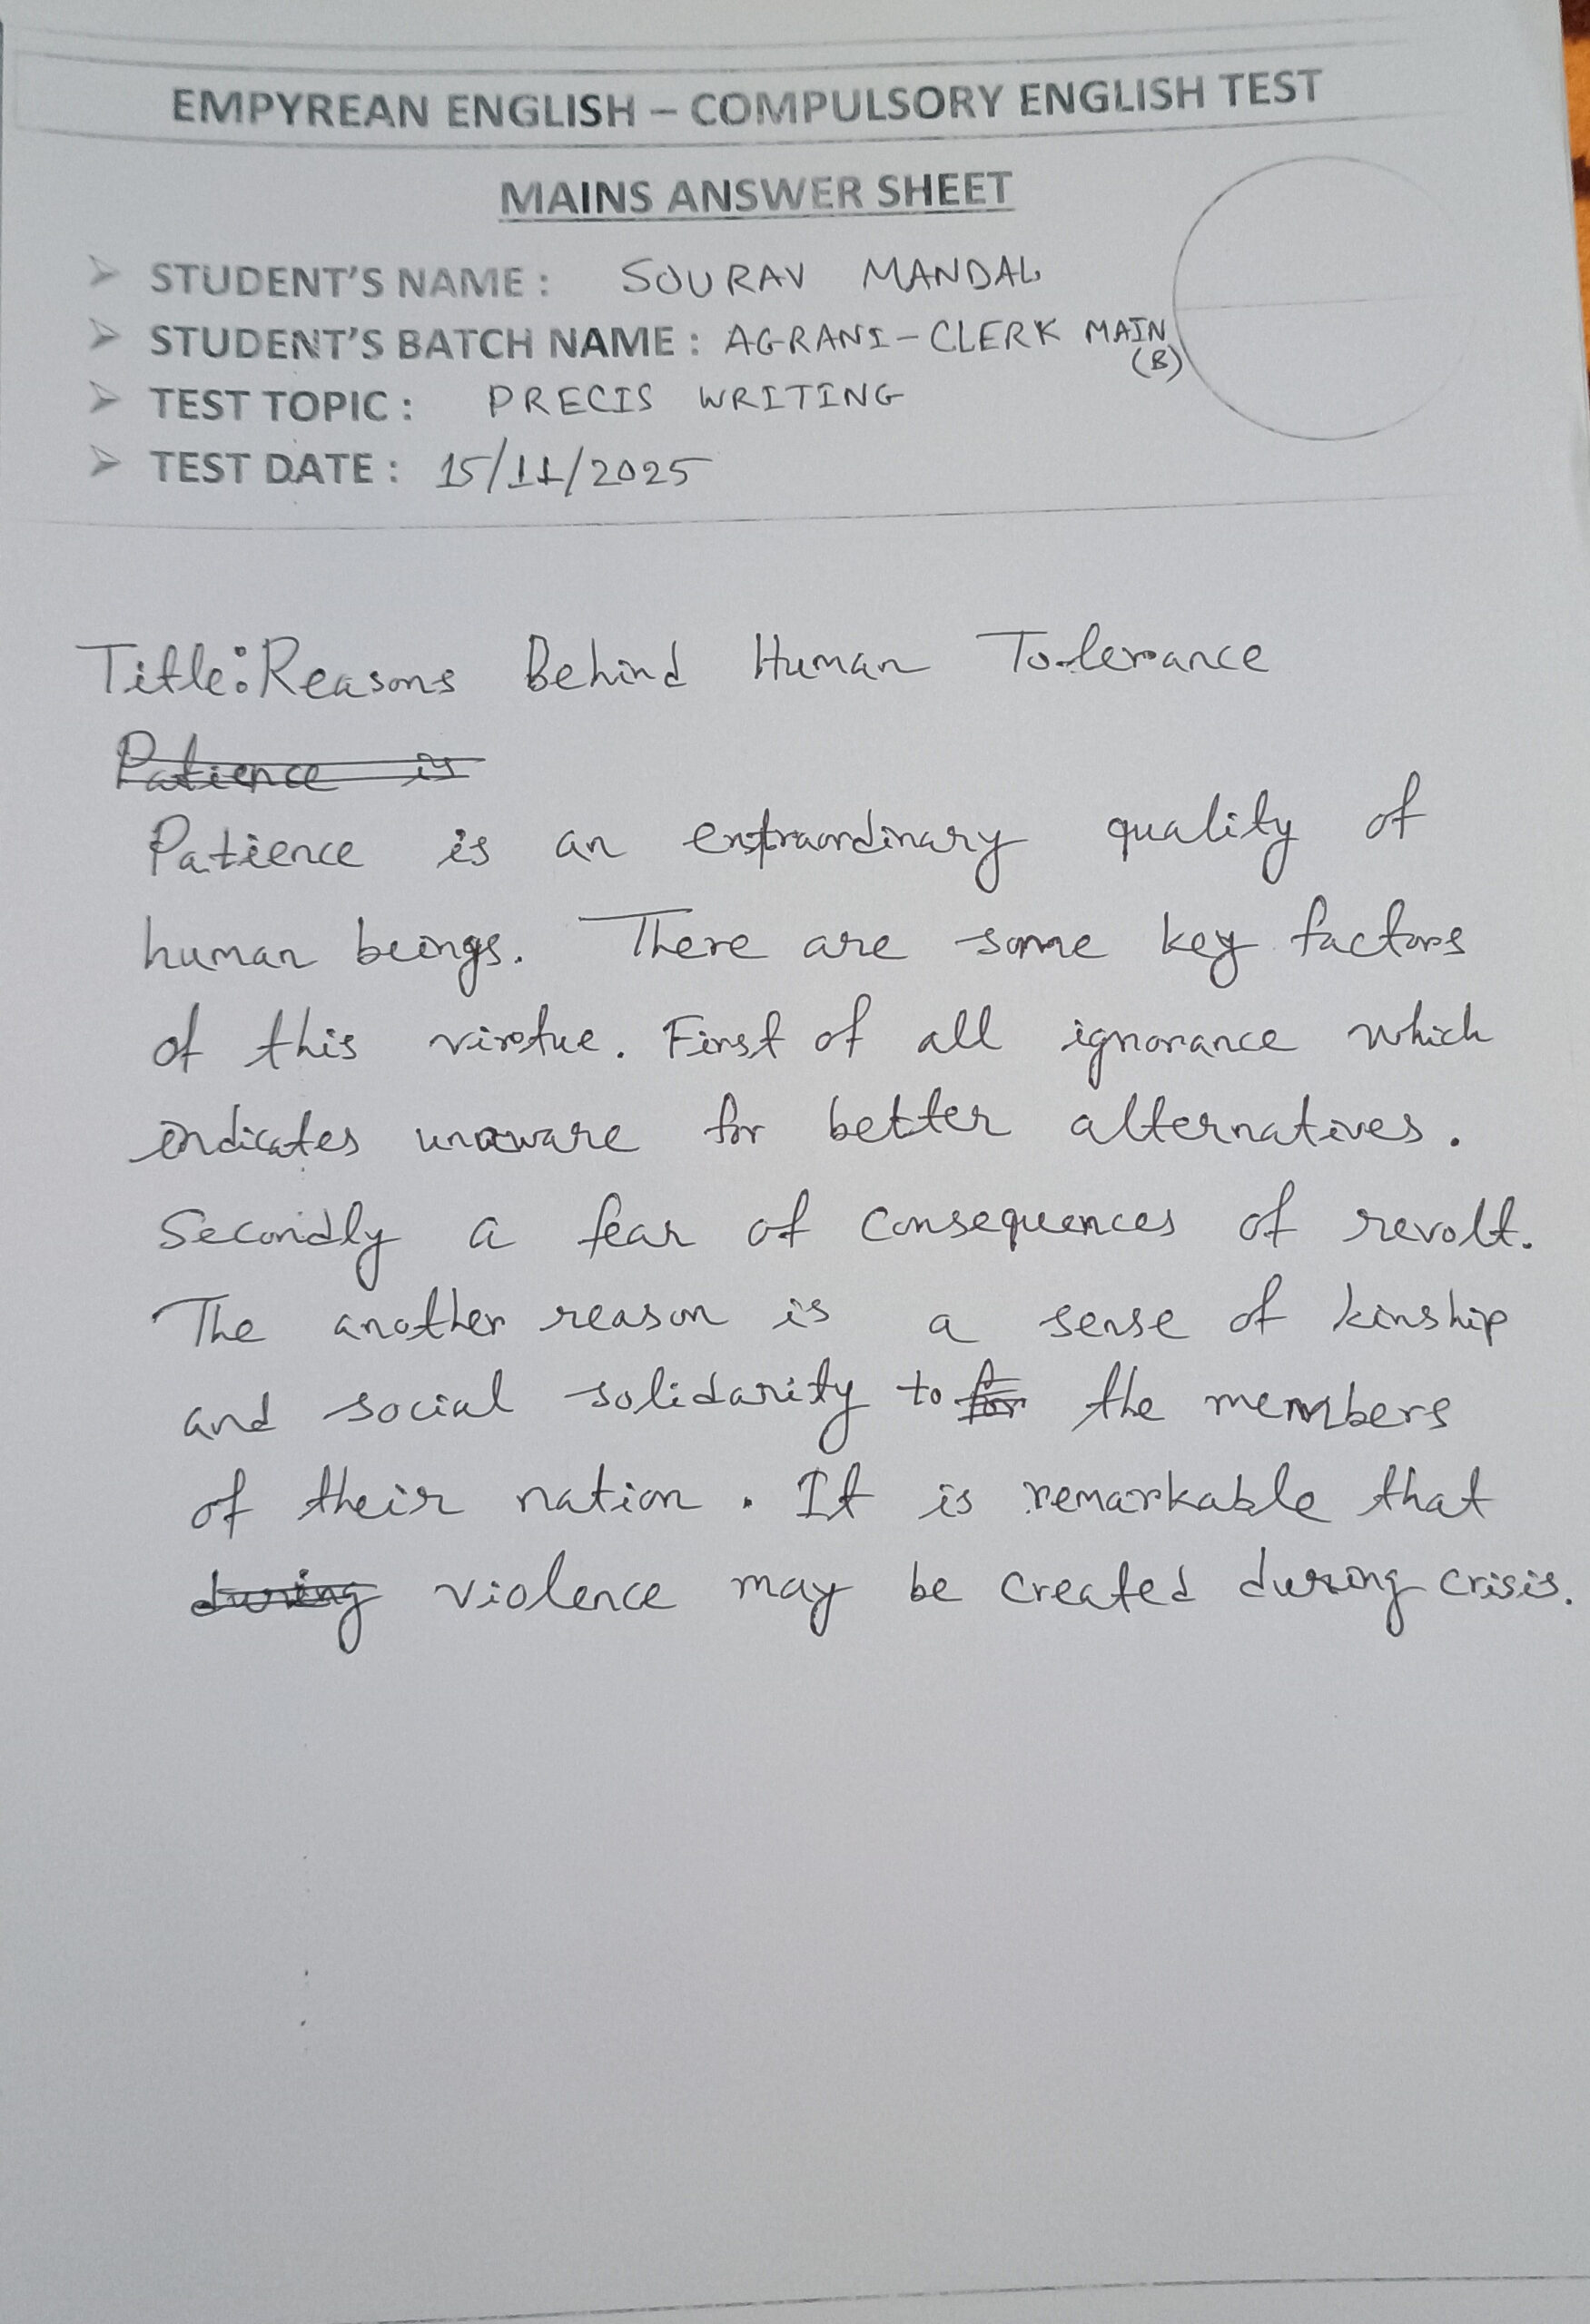 EMPYREAN ENGLISH – COMPULSORY ENGLISH TEST
MAINS ANSWER SHEET
➢ STUDENT'S NAME : SOURAV MANDAL
➢ STUDENT'S BATCH NAME : AGRANI-CLERK MAIN
(B)
➢ TEST TOPIC : PRECIS WRITING
➢ TEST DATE : 15/11/2025
Title: Reasons Behind Human Tolerance
Patience is
Patience is an extraordinary quality of
human beings. There are some key factors
of this virtue. First of all ignorance which
indicates unaware for better alternatives.
Secondly a fear of consequences of revolt.
The another reason is a sense of kinship
and social solidarity to for the members
of their nation. It is remarkable that
during violence may be created during crisis.